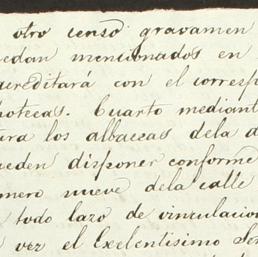 otro censo gravamen
quedan mencionados en
acreditará con el corresp
potecas. Cuarto mediant
tura los albaceas dela d
ueden disponer conforme
mero nueve dela calle
todo lazo de vinculacion
ver el Exelentisimo Señ